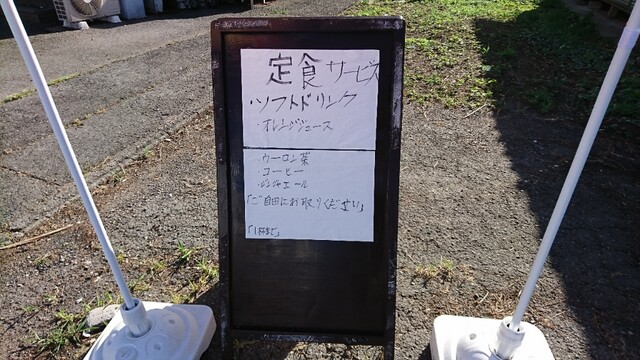 定食サービス
ソフトドリンク
・オレンジジュース
・ウーロン茶
・コーヒー
・ジンジャエール
「ご自由にお取りください」
「1杯まで」